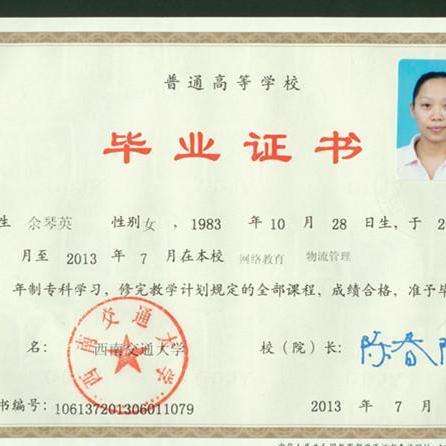 普通高等学校
毕业证书
生 余琴英 性别 女 ，1983 年 10 月 28 日生，于 2
月至 2013 年 7 月在本校 网络教育 物流管理
年制专科学习，修完教学计划规定的全部课程，成绩合格，准予毕
名： 西南交通大学 校（院）长： 陈春
西南交通大学
书编号： 106137201306011079 2013 年 7 月